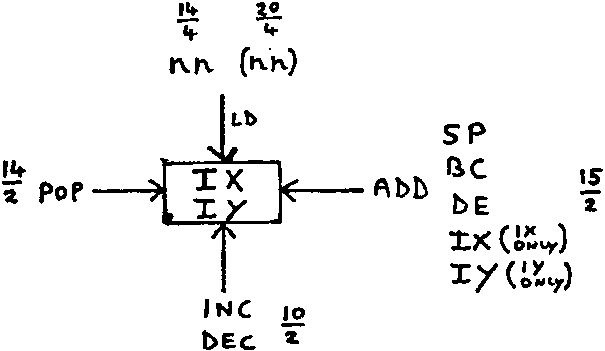 14/4 20/4
nn (nn)
LD
14/2 POP
IX
IY
ADD
SP
BC
DE
IX (IX ONLY)
IY (IY ONLY)
15/2
INC
DEC
10/2